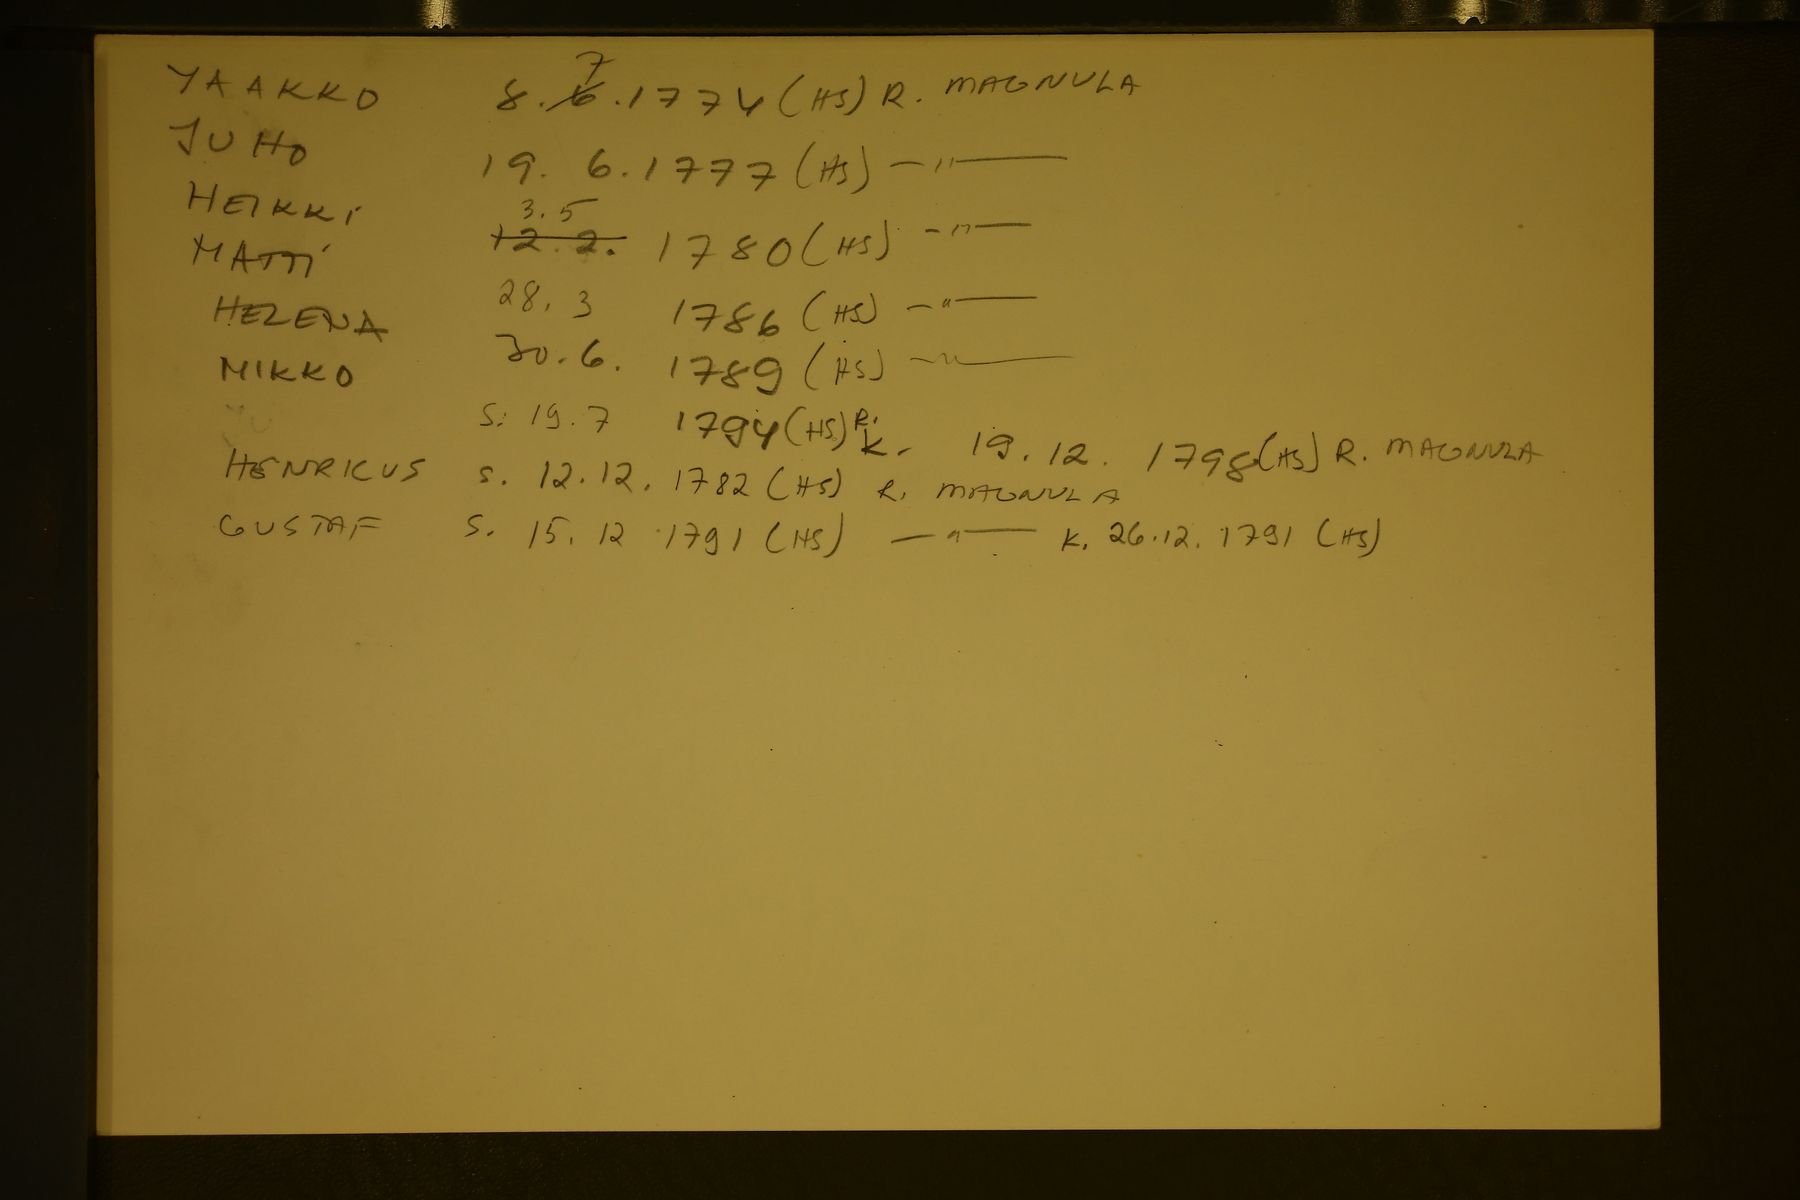 JAAKKO 8. 7 .1774 (HS) R. MAGNULA
JUHO 19. 6. 1777 (HS) —"—
HEIKKI 3. 5 1780 (HS) —"—
MATTI 28. 3 1786 (HS) —"—
HELENA 30. 6. 1789 (HS) —"—
MIKKO S. 19. 7 1794 (HS) R. K. 19. 12. 1798 (HS) R. MAGNULA
HENRICUS S. 12. 12. 1782 (HS) R. MAGNULA
GUSTAF S. 15. 12 1791 (HS) —"— K. 26. 12. 1791 (HS)